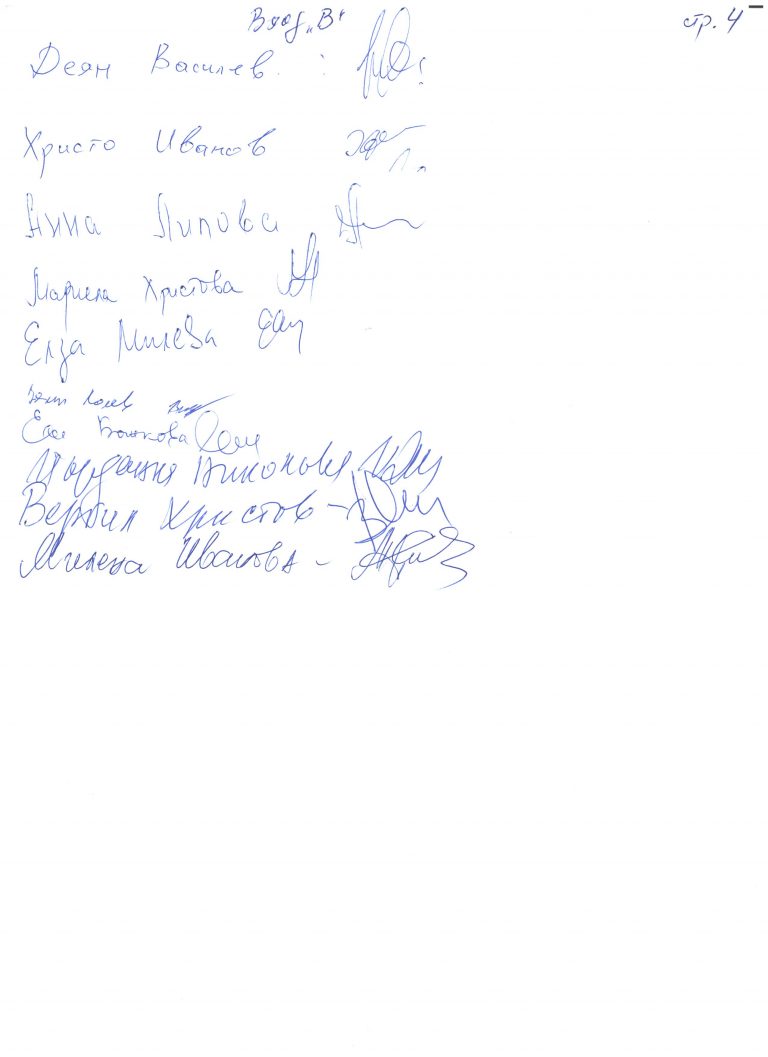 Вход „В“ стр. 4
Деян Василев :
Христо Иванов
Анна Липова
Мариела Христова
Елза Милева
Бошкова
Йорданка Николова
Вербил Христов -
Милена Иванова -